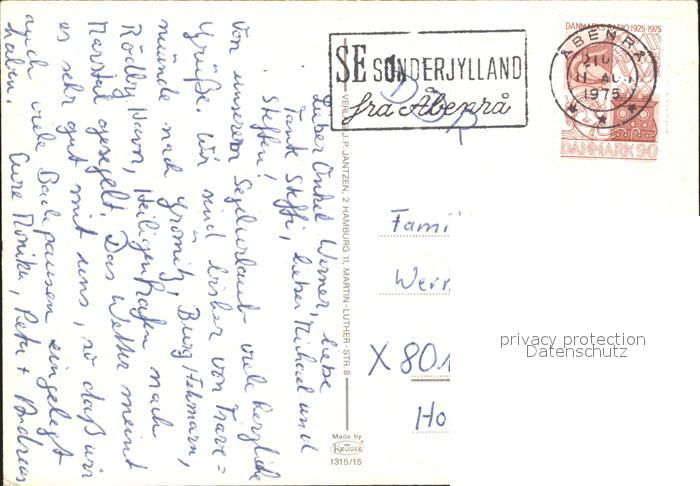 Lieber Onkel Werner, liebe
Tante Steffi, lieber Michael und
Steffen!
Von unserem Segelurlaub viele herzliche
Grüße. Wir sind bisher von Trave=
münde nach Grömitz, Burg Fehmarn,
Rödby Havn, Heiligenhafen nach
Marstal gesegelt. Das Wetter meint
es sehr gut mit uns, so daß wir
auch viele Badepausen eingelegt
haben. Eure Monika, Peter + Andreas
VERLAG J. P. JANTZEN, 2 HAMBURG 11, MARTIN-LUTHER-STR. 8
Made by
KRÜGER
1315/15
SE SØNDERJYLLAND
fra Åbenrå
DDR
DANMARKS RADIO 1925-1975
ÅBENRÅ
1975
DANMARK 90
Fami
Wern
X 801
Ho
privacy protection
Datenschutz